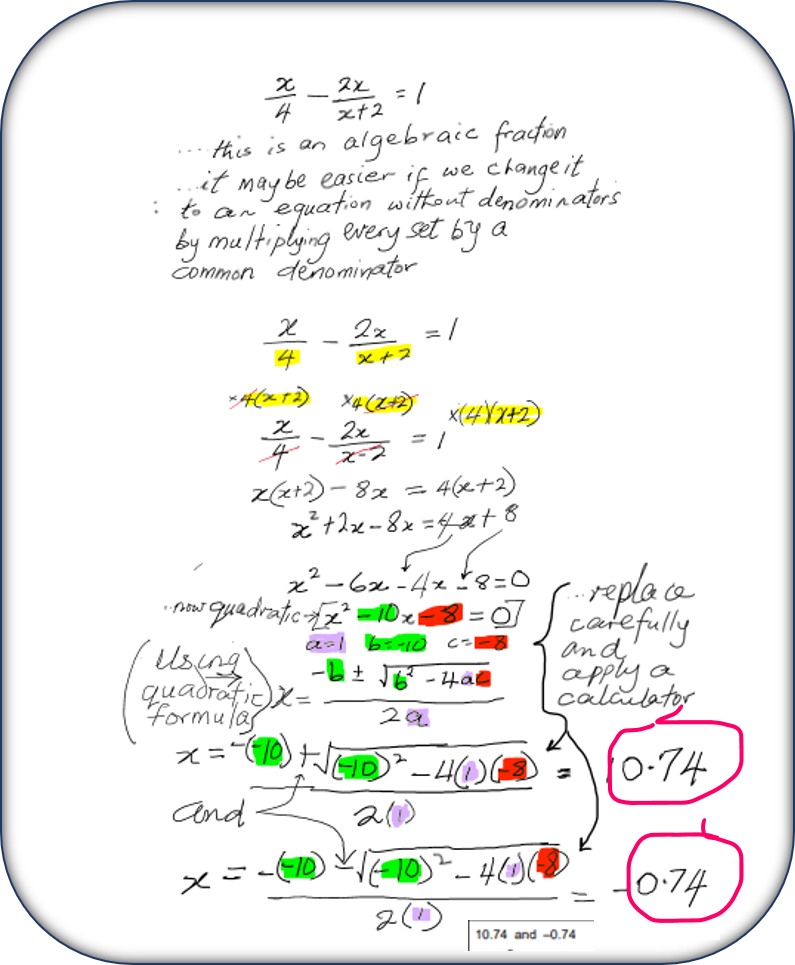 x/4 − 2x/x+2 = 1
....this is an algebraic fraction
...it maybe easier if we change it
: to an equation without denominators
by multiplying every set by a
common denominator
x/4 − 2x/x+2 = 1
×4(x+2) ×4(x+2) ×(4)(x+2)
x/4 − 2x/x-2 = 1
x(x+2) − 8x = 4(x+2)
x² + 2x − 8x = 4x + 8
x² − 6x − 4x − 8 = 0
..now quadratic→[x² − 10x − 8 = 0]
a=1 b=-10 c=-8
(Using → quadratic formula) x = −b ± √b² − 4ac / 2a
...replace
carefully
and
apply a
calculator
x = −(−10) + √(−10)² − 4(1)(−8) / 2(1) = 10.74
and
x = −(−10) − √(−10)² − 4(1)(−8) / 2(1) = −0.74
10.74 and −0.74